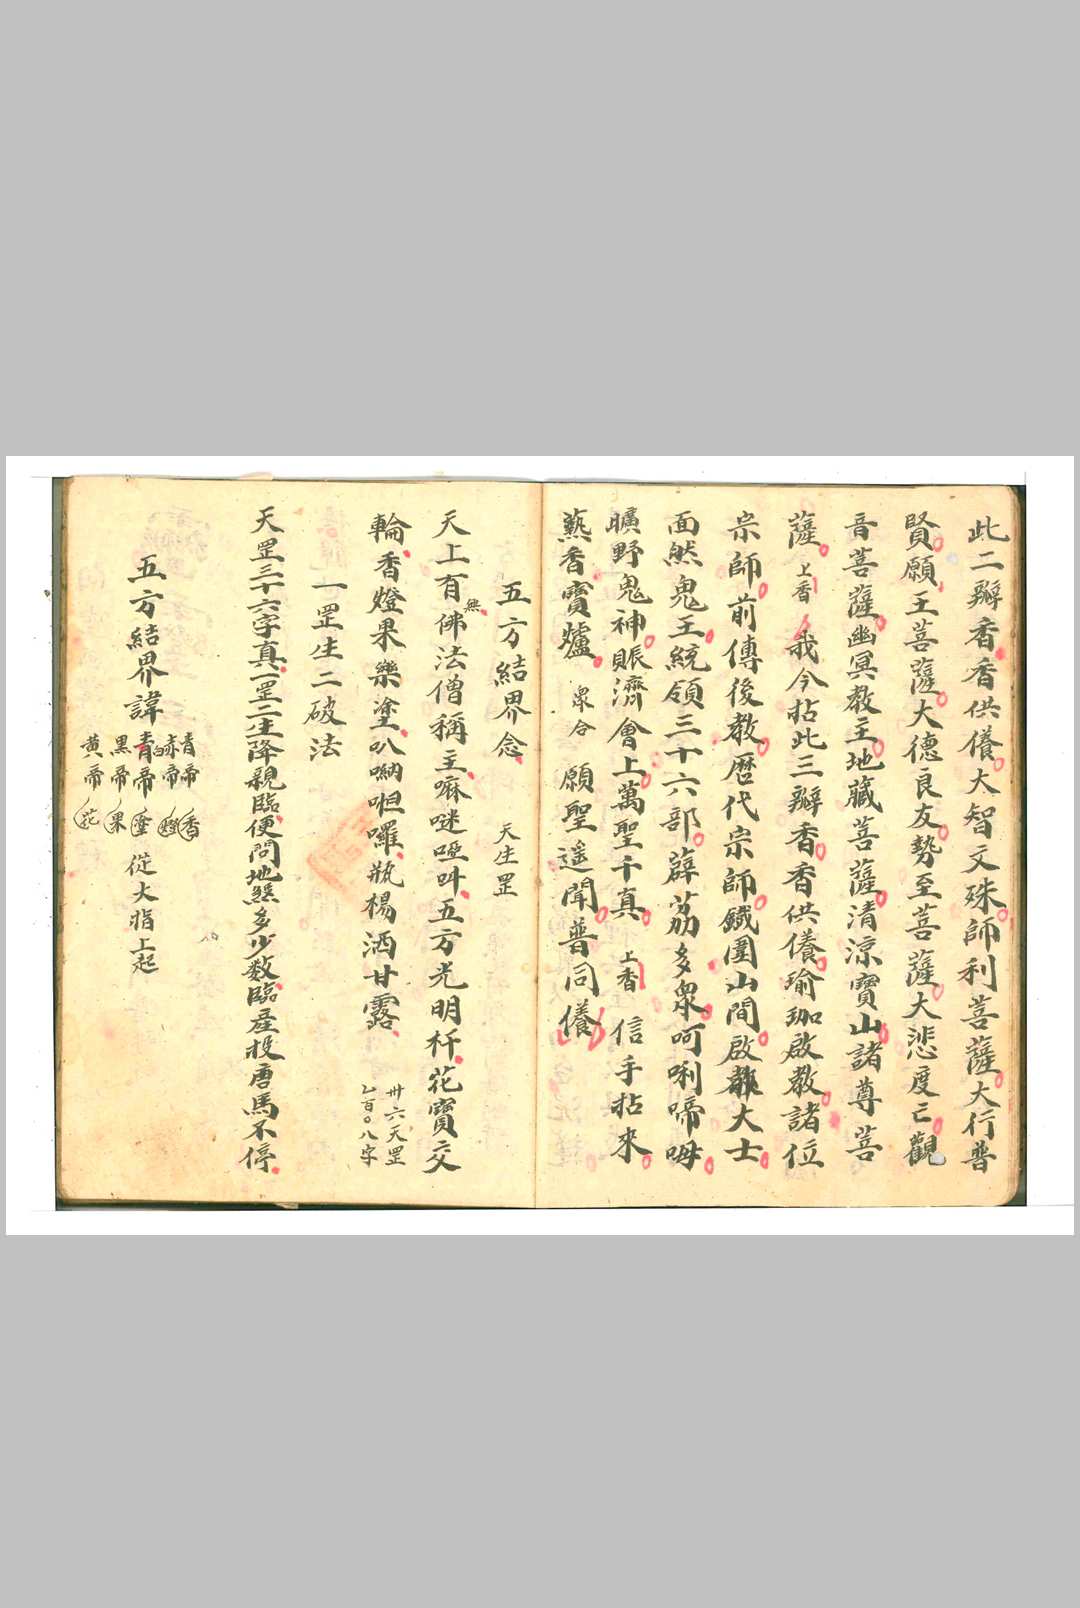 此二瓣香香供儀大智文殊師利菩薩大行普
賢願王菩薩大德良友勢至菩薩大悲度亡觀
音菩薩幽冥教主地藏菩薩清涼寶山諸尊菩
薩 上香 我今拈此三瓣香香供儀瑜珈啟教諸位
宗師前傳後教曆代宗師鐵圍山間啟教大士
面然鬼王統領三十六部薜荔多眾呵唎啼呣
曠野鬼神賑濟會上萬聖千真 上香 信手拈來
爇香寶爐 眾合 願聖遥聞普同儀
五方結界念 天生罡
天上有無佛法僧稱主嘛𠺗啞吽五方光明杆花寶交
輪香燈果樂塗叭喃呾囉瓶楊洒甘露 卅六天罡
乙百〇八字
一罡生二破法
天罡三十六字真一罡二生降親臨便問地煞多少数臨産投唐馬不停
五方結界諱
青帝 香
赤帝 燈
青白帝 塗
黑帝 果
黄帝 花
從大指上起